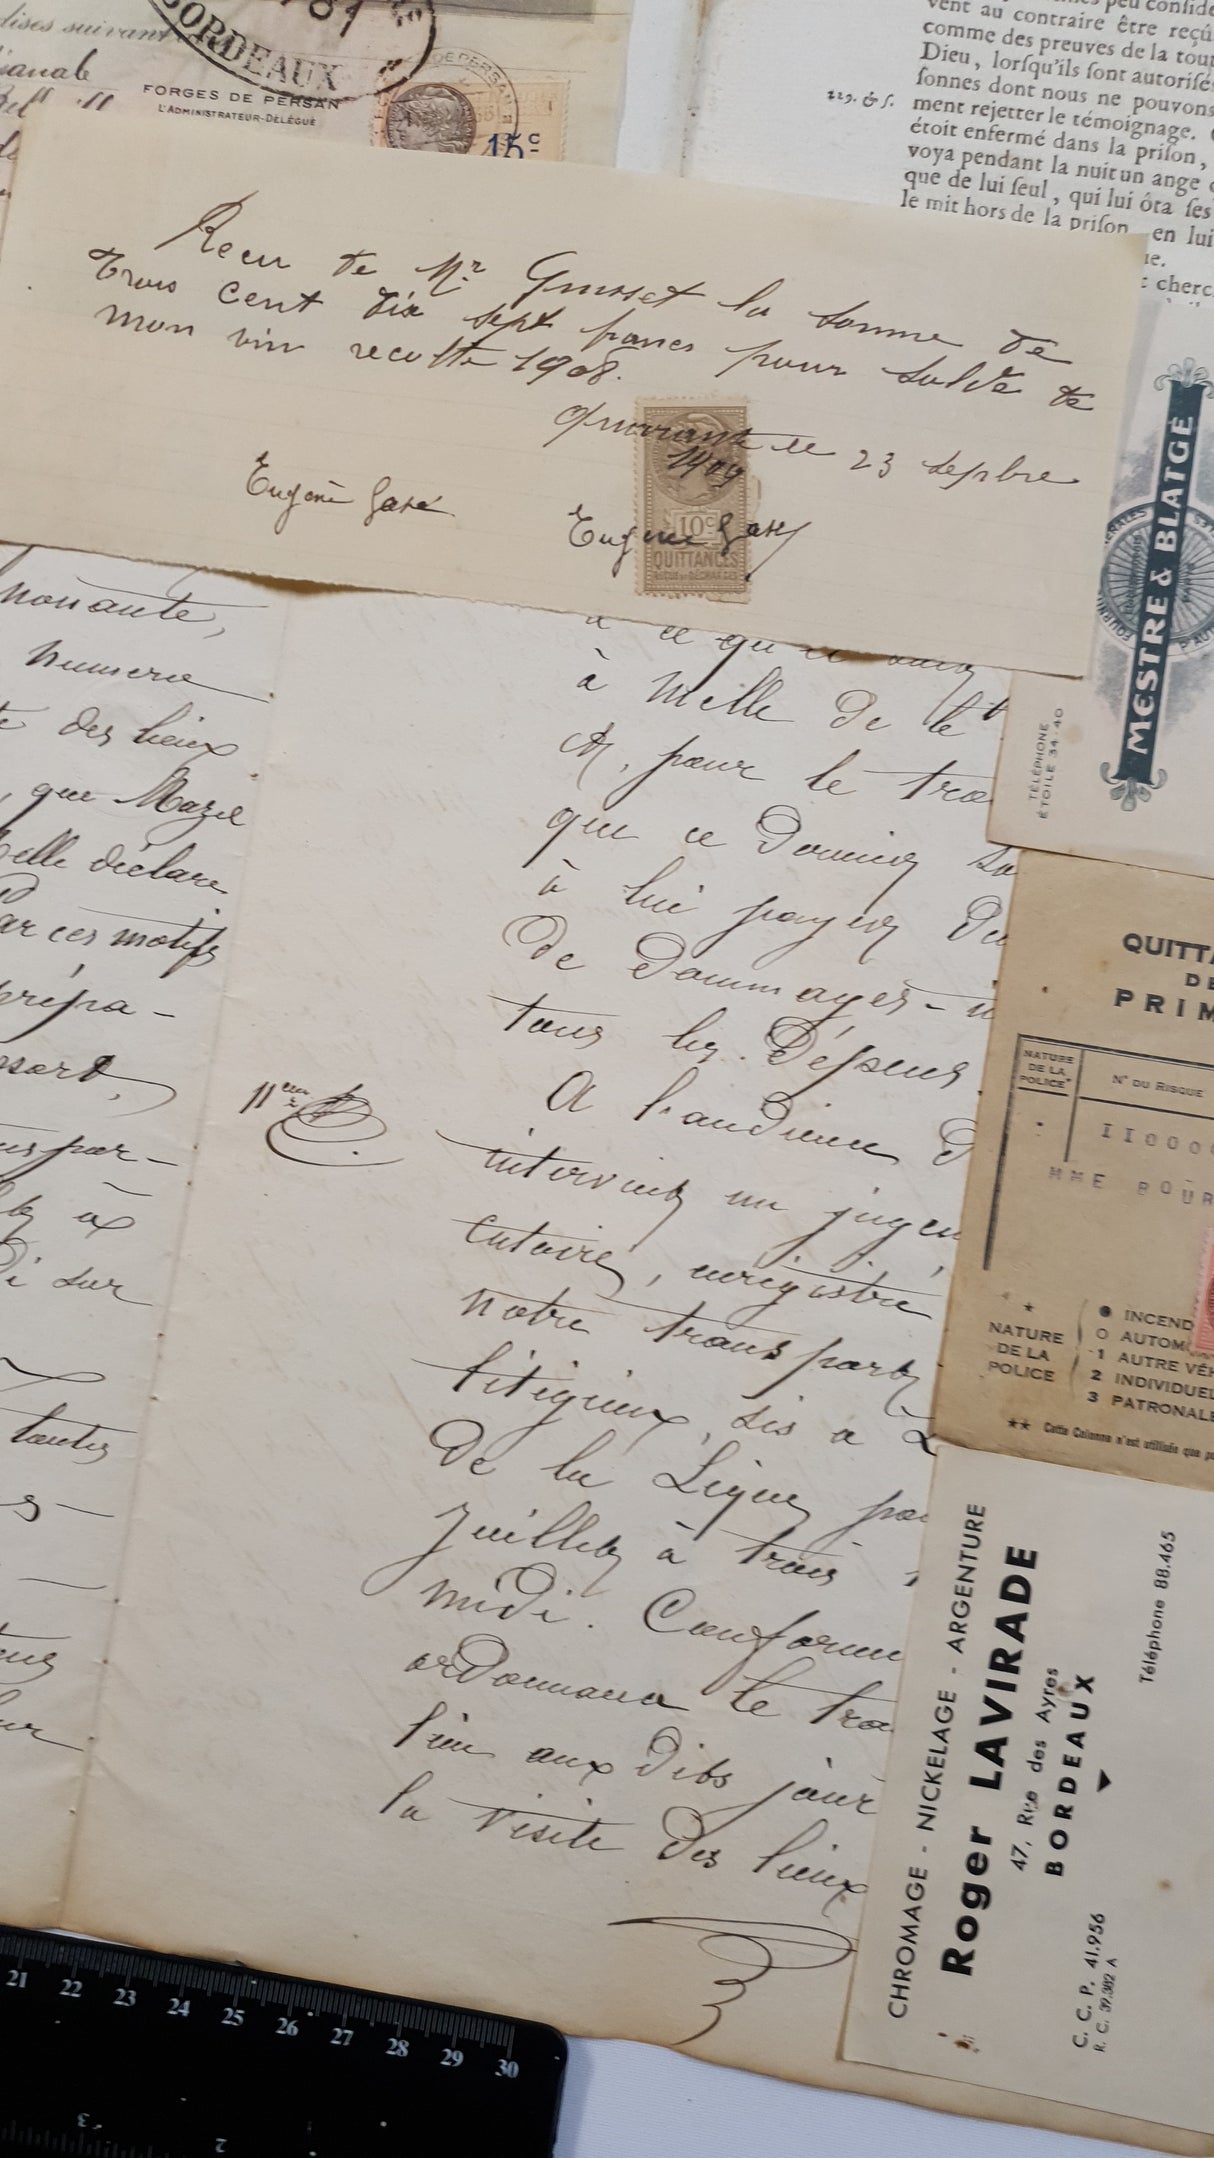 BORDEAUX
FORGES DE PERSAN
L'ADMINISTRATEUR-DÉLÉGUÉ
15c
vent au contraire être reçû
comme des preuves de la tou
Dieu, lorſqu'ils ſont autoriſé
ſonnes dont nous ne pouvons
ment rejetter le témoignage.
étoit enfermé dans la priſon,
voya pendant la nuit un ange
que de lui ſeul, qui lui ôta ſes
le mit hors de la priſon, en lui
cherc
Recu de Mr Grusset la somme de
trois cent dix sept francs pour solde de
mon vin recolte 1908.
Quarante le 23 sepbre
1909
Eugène Gase
Eugène Gasc
10c
QUITTANCES
REÇUS ET DÉCHARGES
MESTRE & BLATGÉ
TÉLÉPHONE
ÉTOILE 34-40
nonante,
numero
des lieux
, que Mazel
elle déclare
Par ces motifs
prépa-
sort,
par-
à
sur
toutes
à ce qu'il
à Melle de le
A, pour le tra
que ce dernier so
à lui payer du
de dommages-
tous les Dépens
A l'audience d
intervint un jugem
cutoire, enregistré
notre transport
litigieux, sis à
de la Ligue pa
Juillet à trois
midi. Conform
ordonnance le tra
lieu aux dits jour
la visite des lieux
11eme
QUITTA
DE
PRIM
NATURE
DE LA
POLICE*
N° DU RISQUE
II000
MME BOUR
*
NATURE
DE LA
POLICE
INCEND
0 AUTOM
1 AUTRE VÉH
2 INDIVIDUEL
3 PATRONALE
** Cette Colonne n'est utilisée que p
CHROMAGE - NICKELAGE - ARGENTURE
Roger LAVIRADE
47, Rue des Ayres
BORDEAUX
Téléphone 88.465
C. C. P. 41.956
R. C. 39.382 A
21 22 23 24 25 26 27 28 29 30
3 2